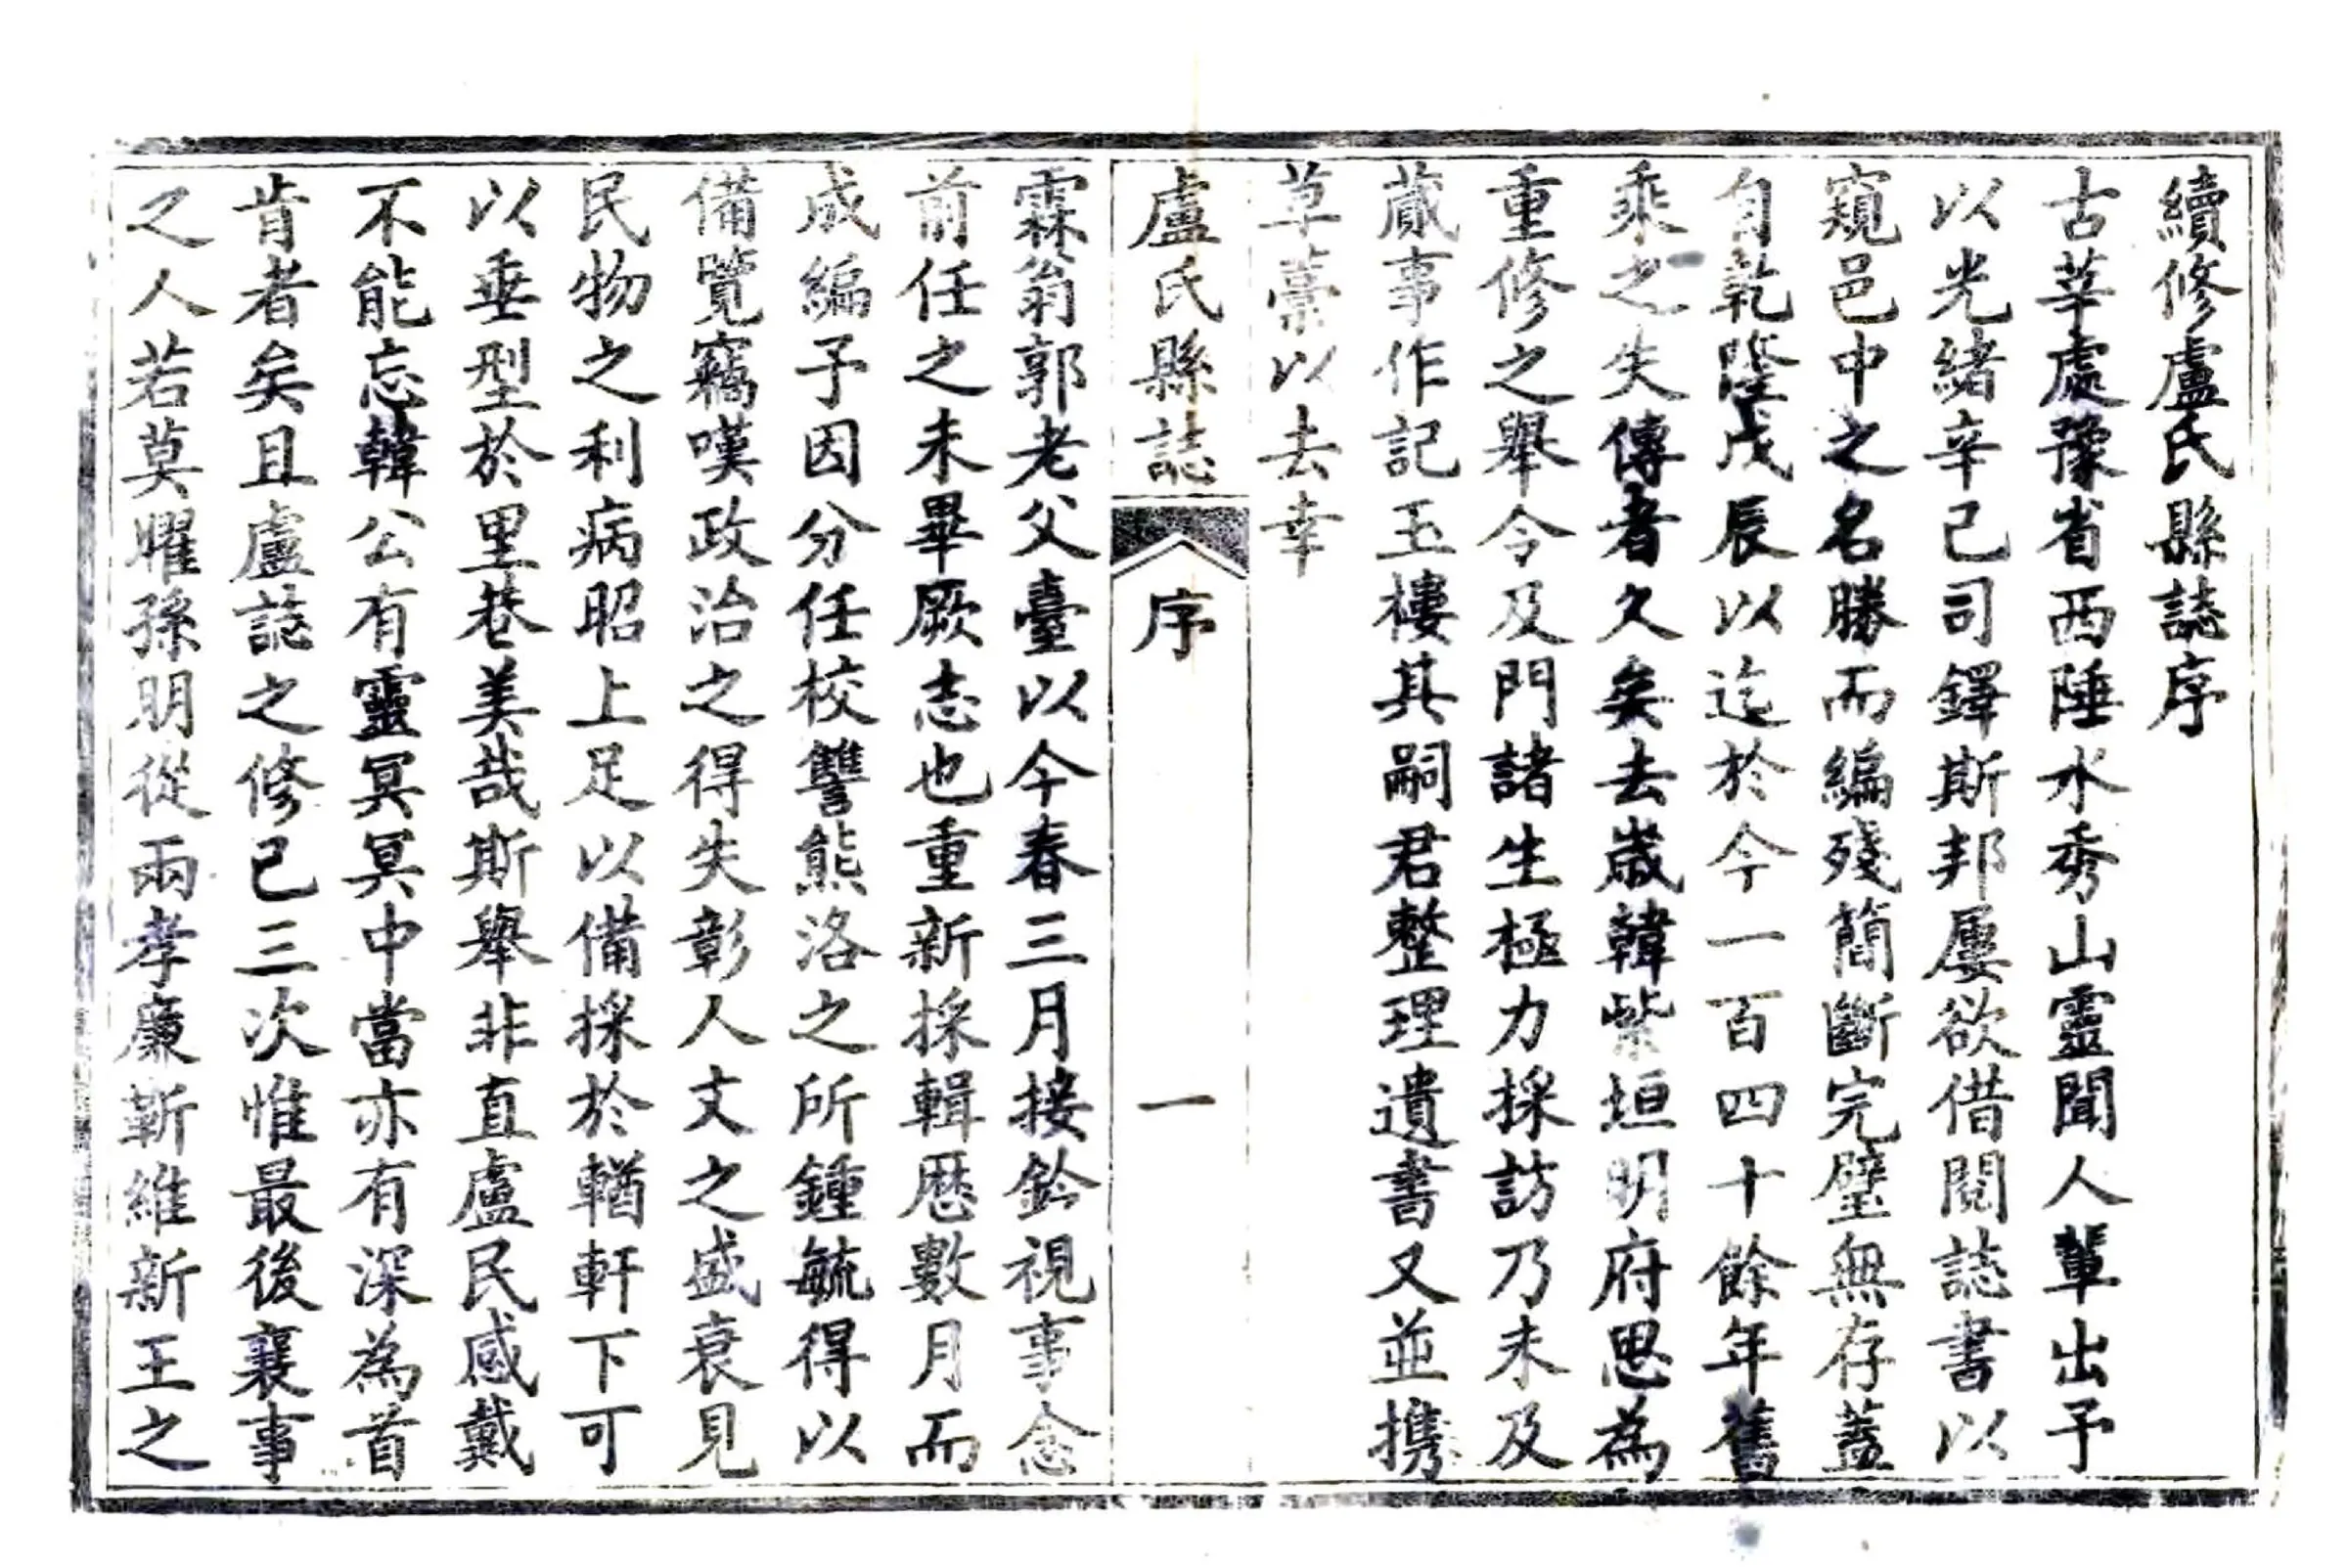 續修盧氏縣誌序
古莘處豫省西陲水秀山靈聞人輩出予
以光緒辛巳司鐸斯邦屢欲借閱誌書以
窺邑中之名勝而編殘簡斷完璧無存蓋
自乾隆戊辰以迄於今一百四十餘年舊
乘之失傳者久矣去歲韓紫垣明府思為
重修之舉令及門諸生極力採訪乃未及
蕆事作記玉樓其嗣君整理遺書又並攜
草藁以去幸
盧氏縣誌
序
一
霖翁郭老父臺以今春三月接鈴視事念
前任之未畢厥志也重新採輯歷數月而
成編予因分任校讐熊洛之所鍾毓得以
備覽竊嘆政治之得失彰人文之盛衰見
民物之利病昭上足以備採於輶軒下可
以垂型於里巷美哉斯舉非直盧民感戴
不能忘韓公有靈冥冥中當亦有深為首
肯者矣且盧誌之修已三次惟最後襄事
之人若莫曜孫明從兩孝廉靳維新王之